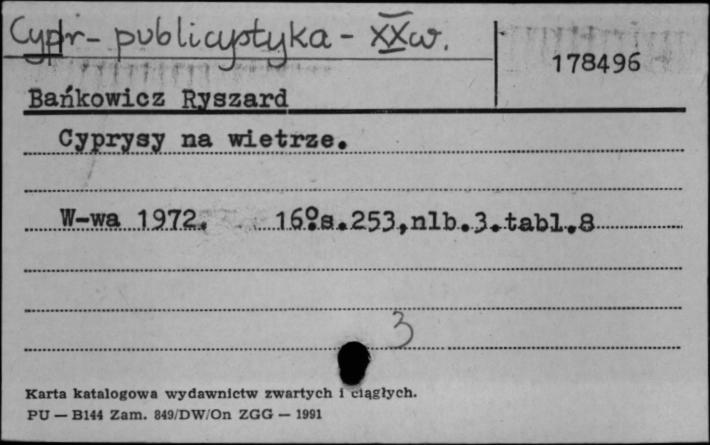 Cypr - publicystyka - XXw.
178496
Bańkowicz Ryszard
Cyprysy na wietrze.
W-wa 1972. 16º.s.253,nlb.3.tabl.8
3
Karta katalogowa wydawnictw zwartych i ciągłych.
PU — B144 Zam. 849/DW/On ZGG — 1991